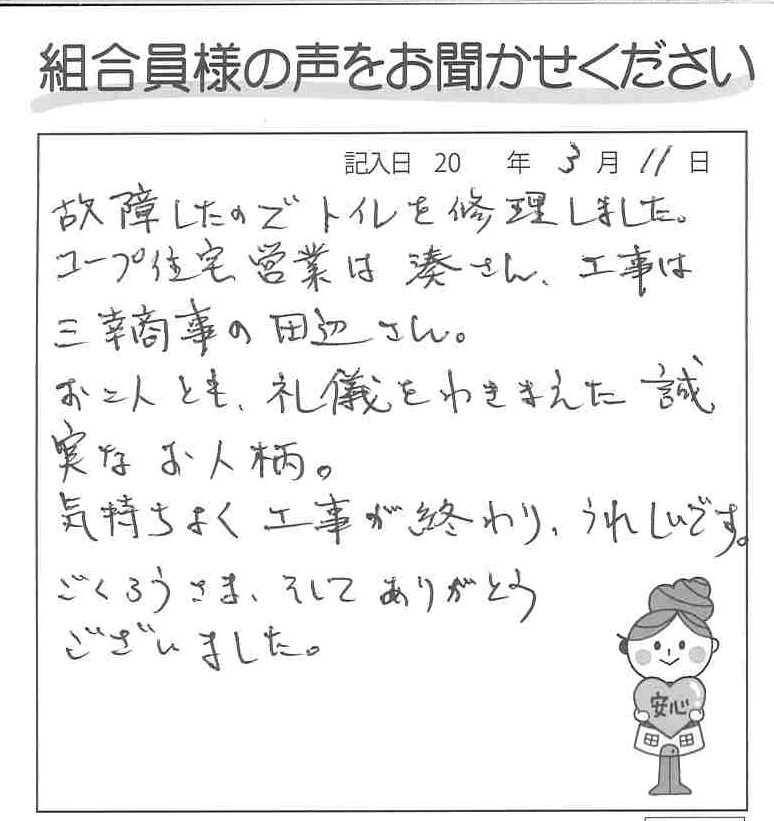 組合員様の声をお聞かせください
記入日 20 年 3 月 11 日
故障したのでトイレを修理しました。
コープ住宅営業は 湊さん、工事は
三幸商事の田辺さん。
お二人とも、礼儀をわきまえた誠
実なお人柄。
気持ちよく工事が終わり、うれしいです。
ごくろうさま、そしてありがとう
ございました。
安心